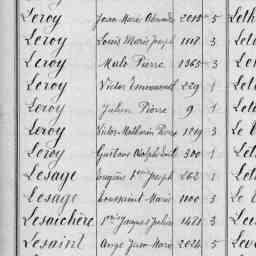 Leroy Jean Marie 2010 5 Leth
Leroy Louis Marie Joseph 1118 3 Let
Leroy Malo Pierre 1365 3 Let
Leroy Victor Emmanuel 229 1 Let
Leroy Julien Pierre 9 1 Let
Leroy Victor Mathurin Pierre 1219 3 Le
Leroy Gustave Adolphe 300 1 Let
Lesage Joseph 262 1 Let
Lesage Toussaint Marie 1100 3 Le
Lesaichère Jacques Julien 1471 3 Le
Lesaint Ange Jean Marie 2024 5 Lev